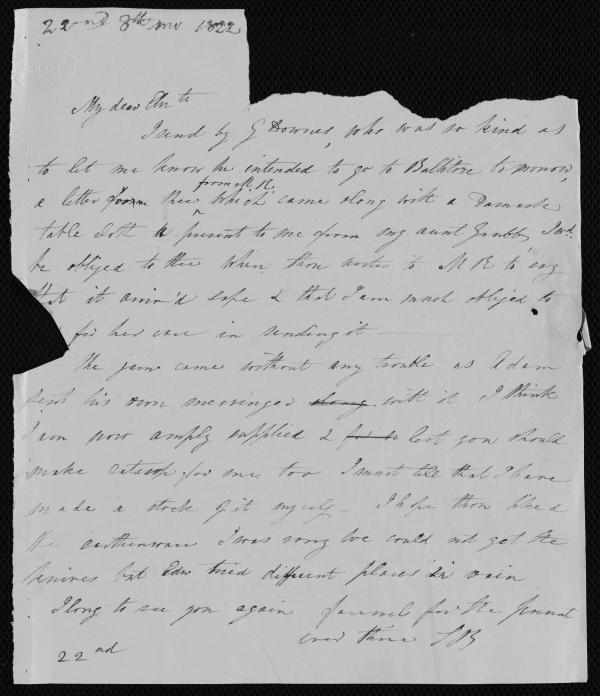 22nd 8th mo 1822
My dear Elizth
I send by G Downes, who was so kind as
to let me know he intended to go to Balitore to morrow,
from M R,
a letter from thee which came along with a Damask
table cloth a present to me from my aunt Grubb, I wd.
be obliged to thee when thou writes to M R to say
that it arriv'd safe & that I am much obliged to
for her care in sending it —
The jam came without any trouble as Adam
sent his own messenger along with it I think
I am now amply supplied & lest you should
make catsup for me too I must tell that I have
made a stock of it myself - I hope thou liked
the earthenware I was sorry we could not get the
knives but Edw tried different places in vain
I long to see you again farewell for the present
ever thine SB
22nd